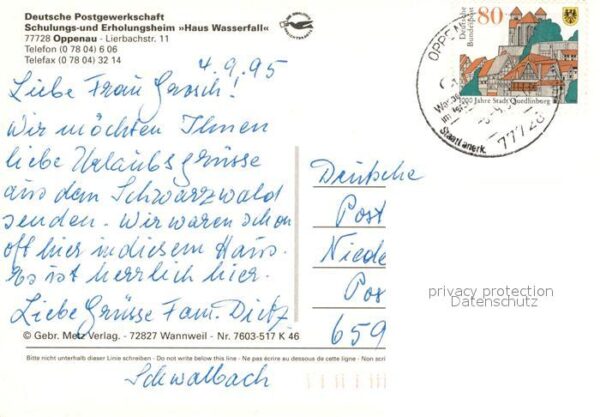 Deutsche Postgewerkschaft
Schulungs- und Erholungsheim »Haus Wasserfall«
77728 Oppenau - Lierbachstr. 11
Telefon (0 78 04) 6 06
Telefax (0 78 04) 32 14
4.9.95
Liebe Frau
Wir möchten Ihnen
liebe Urlaubsgrüsse
aus dem Schwarzwald
senden. Wir waren schon
oft hier in diesem Haus.
Es ist herrlich hier.
Liebe Grüsse Fam. Dietz
© Gebr. Metz Verlag. - 72827 Wannweil - Nr. 7603-517 K 46
Bitte nicht unterhalb dieser Linie schreiben - Do not write below this line - Ne pas écrire au dessous de cette ligne - Non scri
Schwalbach
Deutsche Bundespost
80
1000 Jahre Stadt Quedlinburg
OPPEN
Staatl anerk.
77728
Deutsche
Post
Niede
Pos
659
privacy protection
Datenschutz